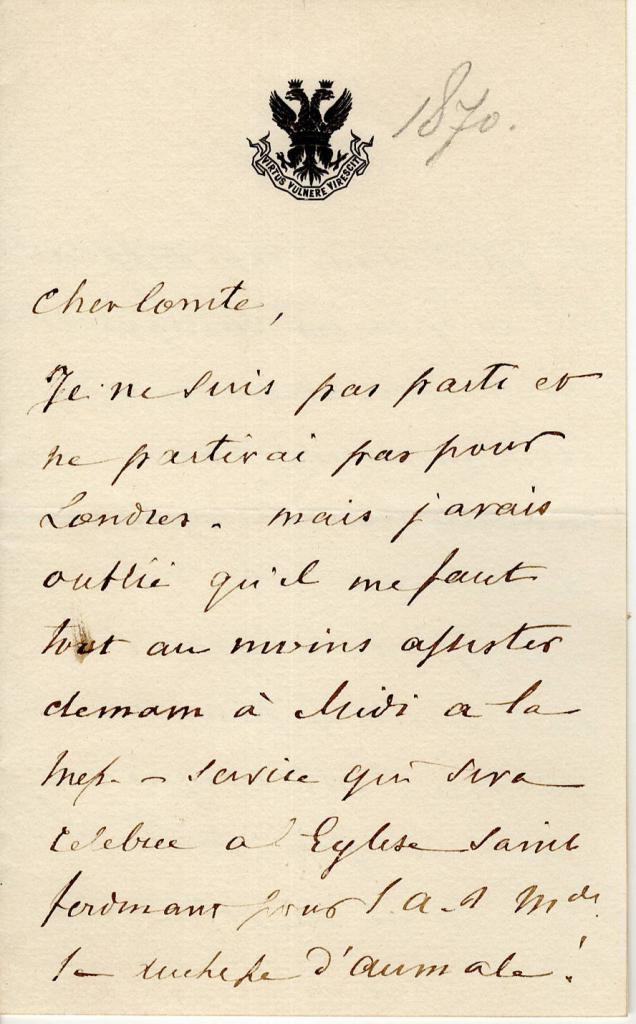 VIRTUS VULNERE VIRESCIT
1870.
Cher Comte,
Je ne suis pas parti et
ne partirai pas pour
Londres. mais j'avais
oublié qu'il me faut
tout au moins assister
demain à Midi a la
Messe - service qui sera
célébrée a l'Eglise Saint
ferdinant pour S. A. R Mde
la duchesse d'aumale!